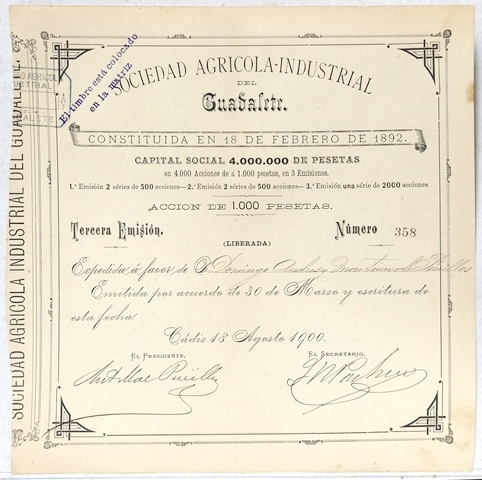 El timbre está colocado
en la matriz
SOCIEDAD AGRICOLA INDUSTRIAL DEL GUADALETE.
SOCIEDAD AGRICOLA-INDUSTRIAL
DEL
Guadalete.
CONSTITUIDA EN 18 DE FEBRERO DE 1892.
CAPITAL SOCIAL 4.000.000 DE PESETAS
en 4.000 Acciones de á 1.000 pesetas, en 3 Emisiones.
1.ª Emisión 2 séries de 500 acciones—2.ª Emisión 2 séries de 500 acciones—3.ª Emisión una série de 2000 acciones
ACCION DE 1.000 PESETAS.
Tercera Emisión.
Número 358
(LIBERADA)
Expedida á favor de D Domingo
Emitida por acuerdo de 30 de Marzo y escritura de
esta fecha.
Cádiz 18 Agosto 1900.
EL PRESIDENTE,
EL SECRETARIO,